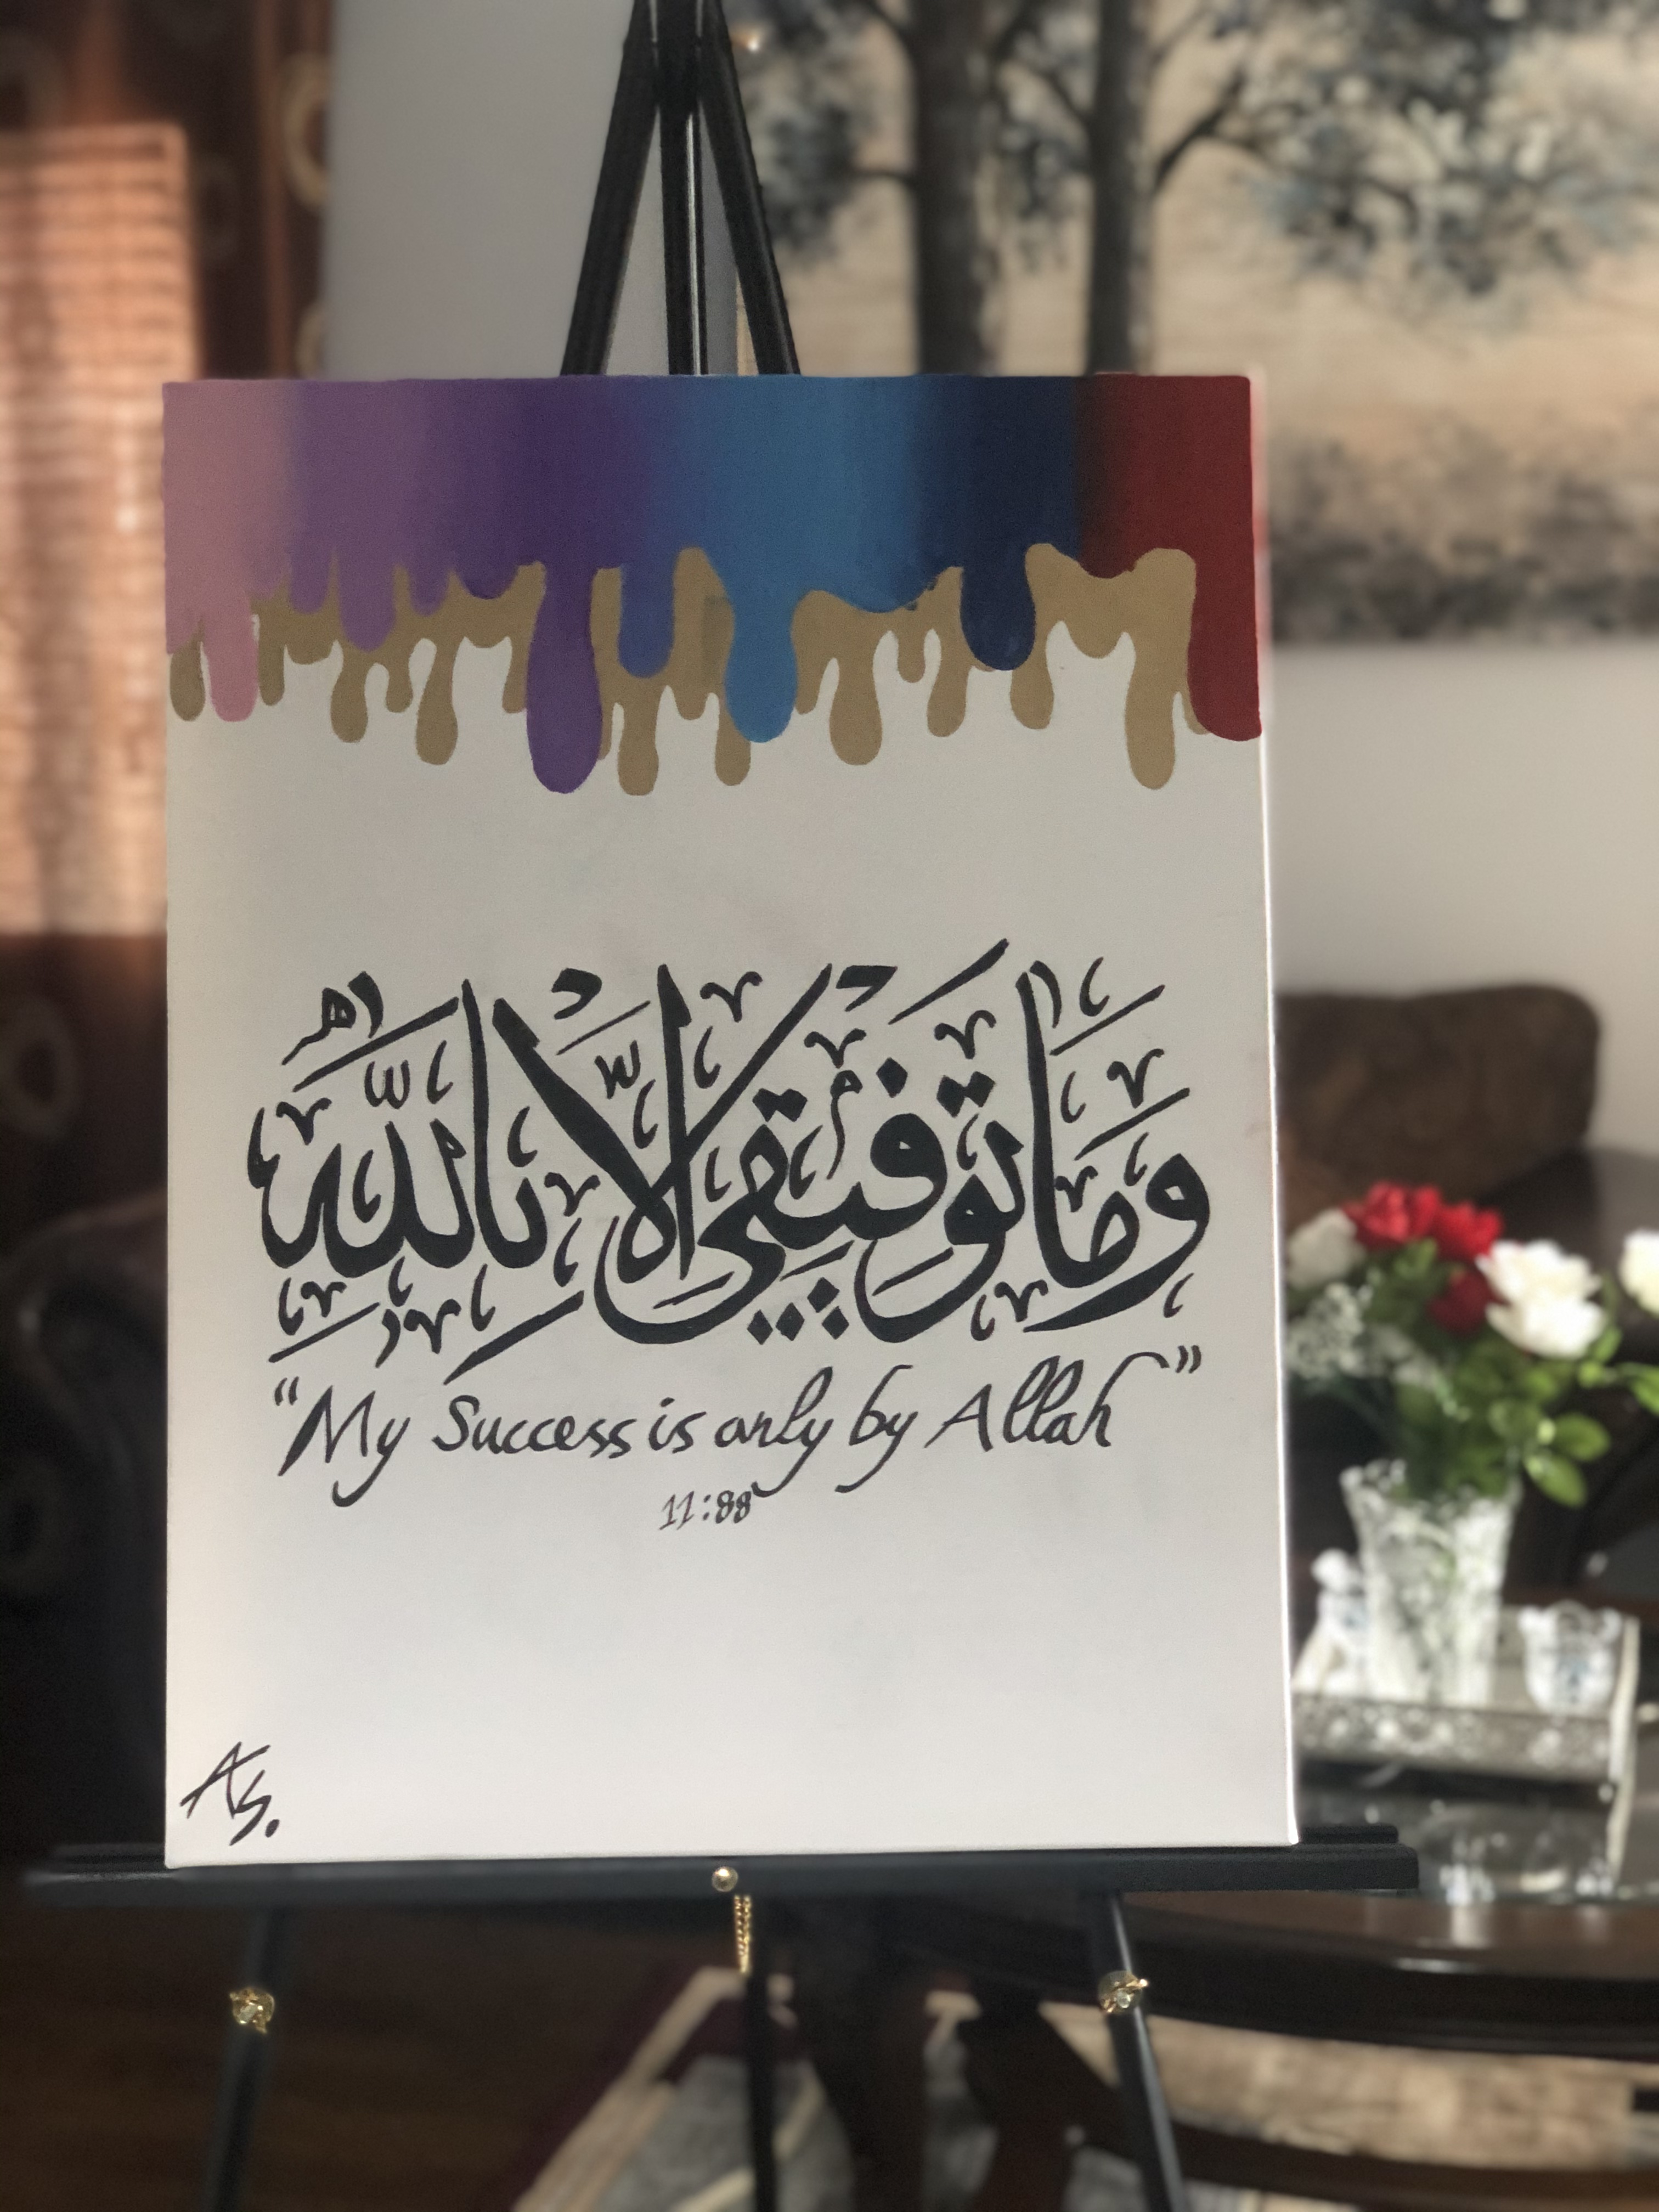 وَمَا تَوْفِيقِي إِلَّا بِاللَّهِ
“My Success is only by Allah”
11:88
AS.